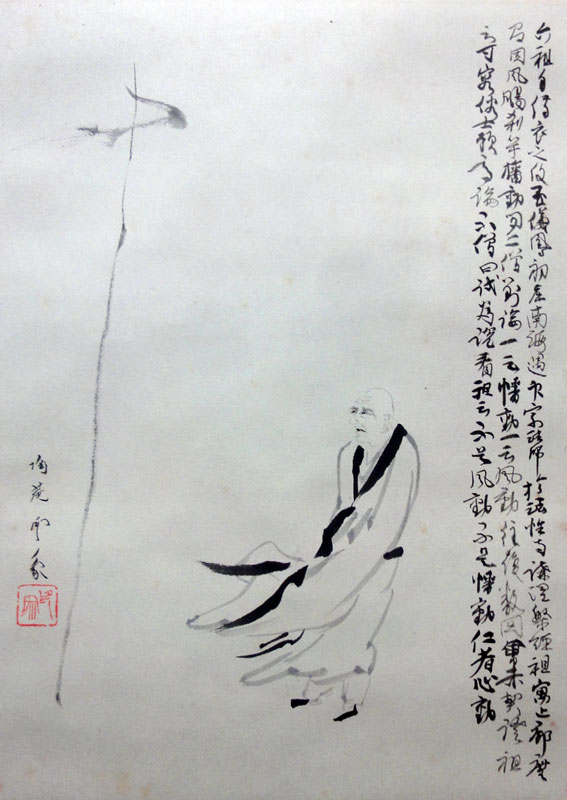 六祖自傳衣之後至儀鳳初屆南海遇印宗法師於法性寺講涅槃經祖寓止廊廡
間因風颺刹竿幡動二僧對論一云幡動一云風動往復數曾未契祖
云可容俗士預高論不僧曰試為說看祖云不是風動不是幡動仁者心動
陶苑